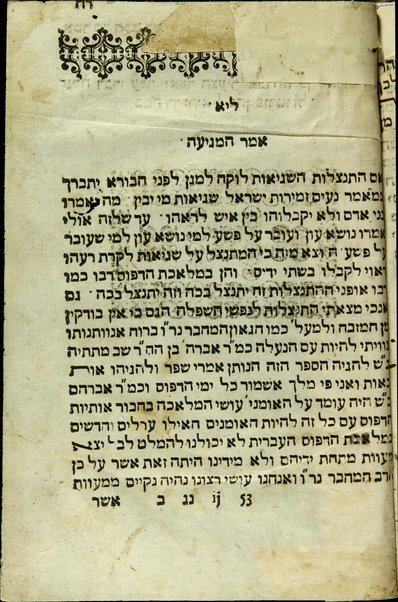 ליא
אמר המגיעה
אם התנצלות השגיאות לוקח למנן לפני הבורא יתברך
במאמר נעים זמירות ישראל שגיאות מי יבין מה יאמרו
בני אדם ולא יקבלוהו בין איש לראהו עד שלזה אולי
אמרו נושא עון ועובר על פשע למי נושא עון למי שעובר
על פשע וצא מזה כי המתנצל על שגיאות לקרת רעהו
ראוי לקבלו בשתי ידים והן במלאכת הדפוס רבו כמו
רבו אופני ההתנצלות זה יתנצל בכה וזה יתנצל בכה גם
אנכי מצאתי התנצלות לנפשי השפלה הגם כי אין בודקין
מן המזבח ולמעל׳ כמו הגאון המחבר נר״ו ברוח אנוותנותו
צוויתי להיות עם הנעלה כמ״ר אברה׳ בן הה״ר שב מתתיה
ב״ש להגיה הספר הזה הנותן אמרי שפר ולהגיהו אות
באות ואני פי מלך אשמור כל ימי הדפוס וכמ״ר אברהם
ב״ש היה עומד על האומני׳ עושי המלאכה בחבור אותיות
הדפוס עם כל זה להיות האומנים האילו ערלים וחדשים
במלאכת הדפוס העברית לא יכולנו להמלט לבל יצא
טעות מתחת ידיהם ולא מידינו היתה זאת אשר על כן
הרב המחבר נר״ו ואנחנו עושי רצונו נהיה נקיים ממעוות
53 ij נג ב אשר